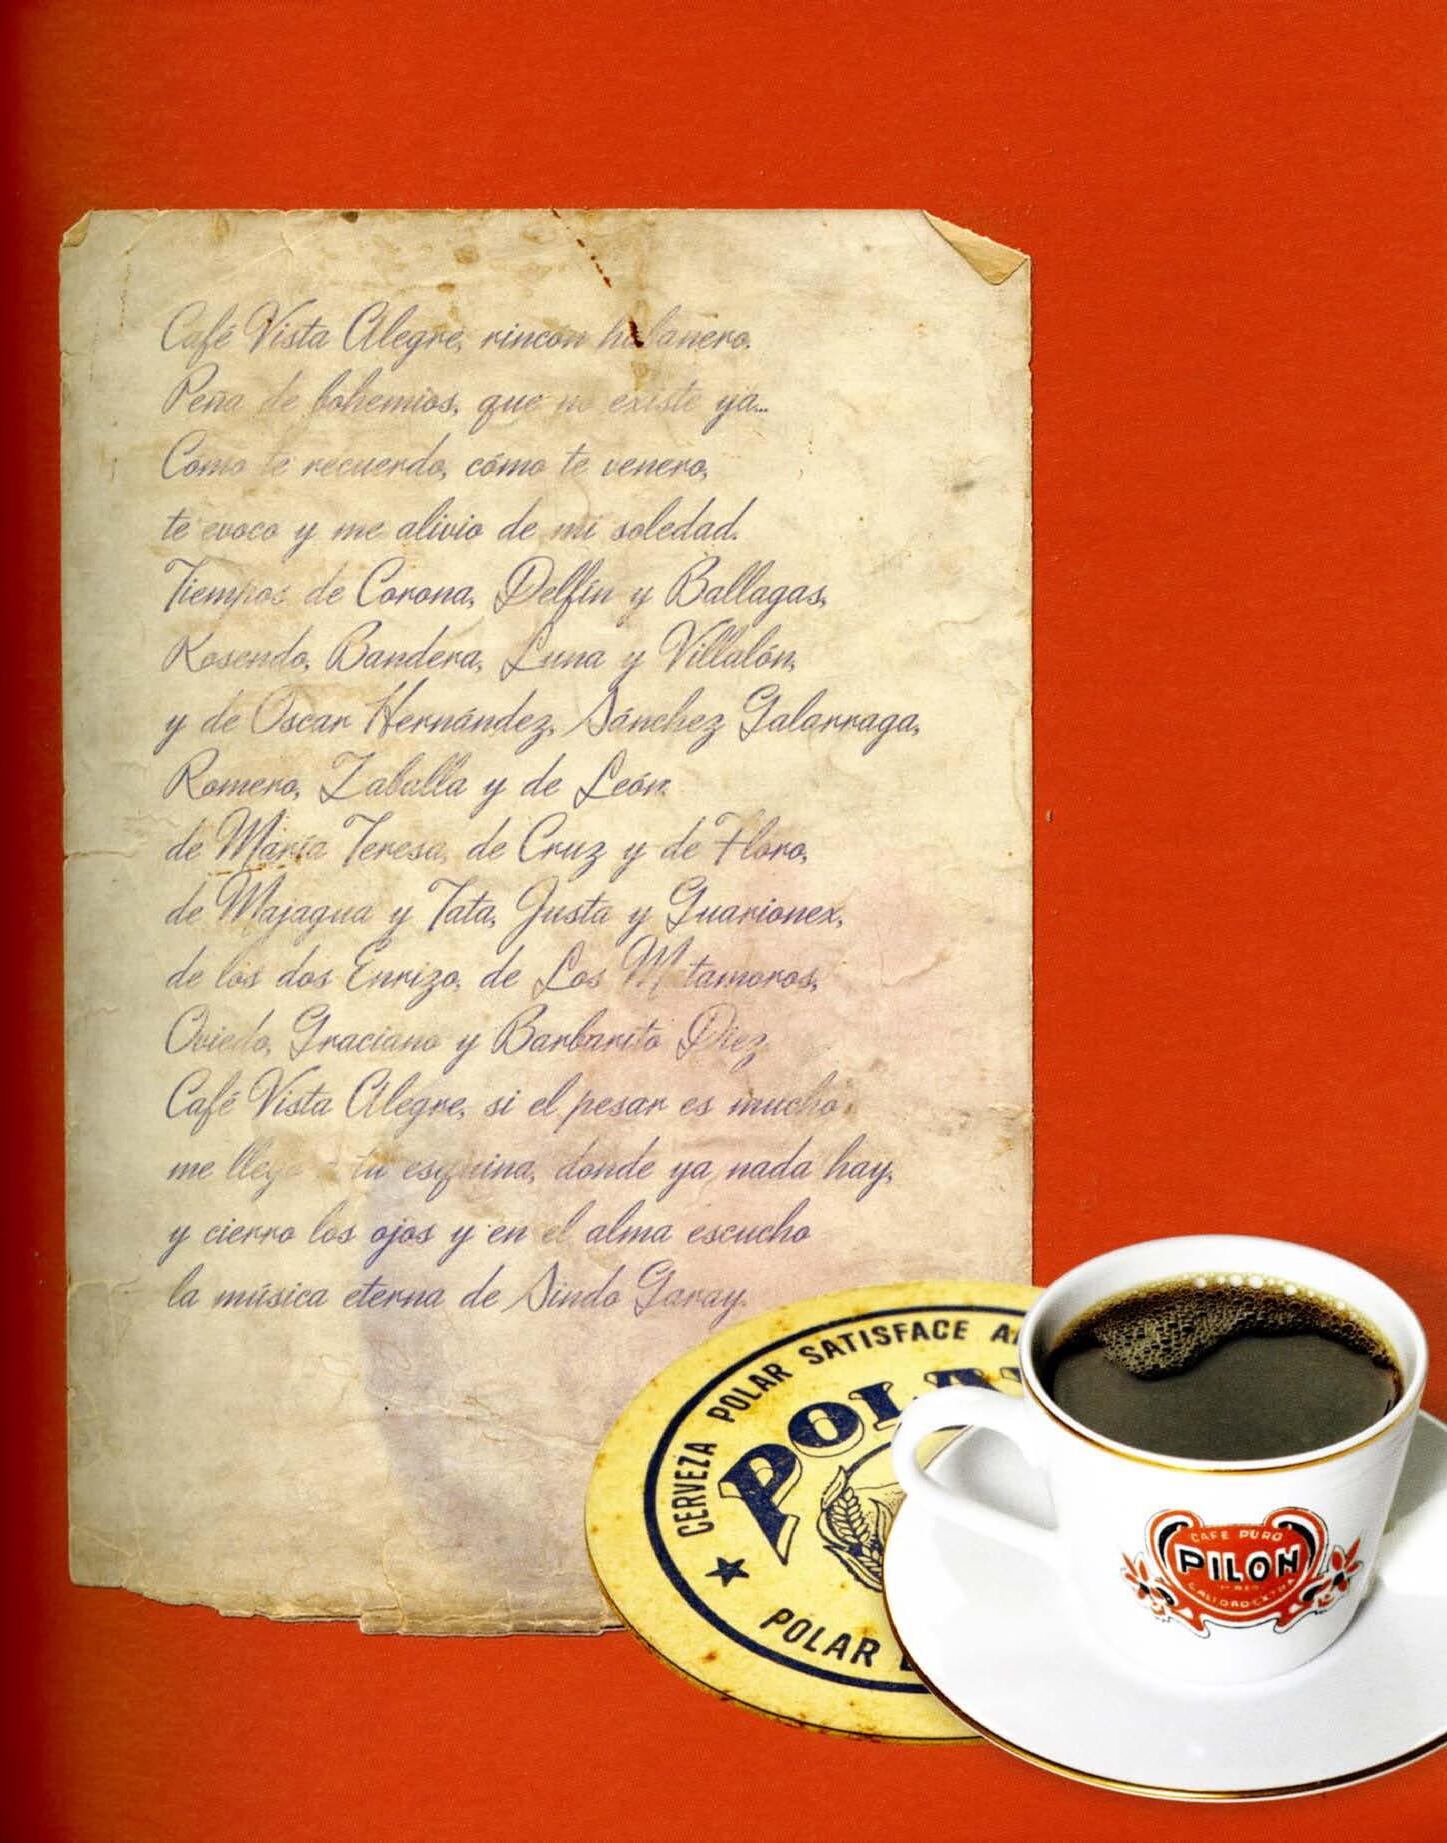 Café Vista Alegre, rincón habanero.
Peña de bohemios, que no existe ya...
Cómo te recuerdo, cómo te venero,
te evoco y me alivio de mi soledad.
Tiempos de Corona, Delfín y Ballagas,
Rosendo, Bandera, Luna y Villalón,
y de Oscar Hernández, Sánchez Galarraga,
Romero, Zaballa y de León.
de María Teresa, de Cruz y de Floro,
de Majagua y Tata, Justa y Guarionex,
de los dos Enrizo, de Los M tamoros,
Oviedo, Graciano y Barbarito Diez
Café Vista Alegre, si el pesar es mucho
me lleg tu esquina, donde ya nada hay,
y cierro los ojos y en el alma escucho
la música eterna de Sindo Garay.
CERVEZA POLAR SATISFACE
POLA
POLAR
CAFE PURO
PILON